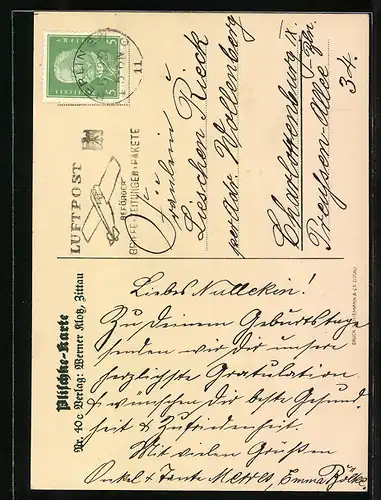 BERLIN
5
5
11.
LUFTPOST
BEFÖRDERT
BRIEFE·ZEITUNGEN·PAKETE
Fräulein
Lieschen Rieck
per Adr. Wollenberg
Charlottenburg IX.
Preussen-Allee
34.
Plischke-Karte
Nr. 10c Verlag: Werner Klotz, Zittau
Liebes Nulleken!
Zu Deinem Geburtstage
senden wir dir unsere
herzlichste Gratulation.
& wünschen dir beste Gesund-
heit & Zufriedenheit.
Mit vielen Grüßen
Onkel & Tante Emma